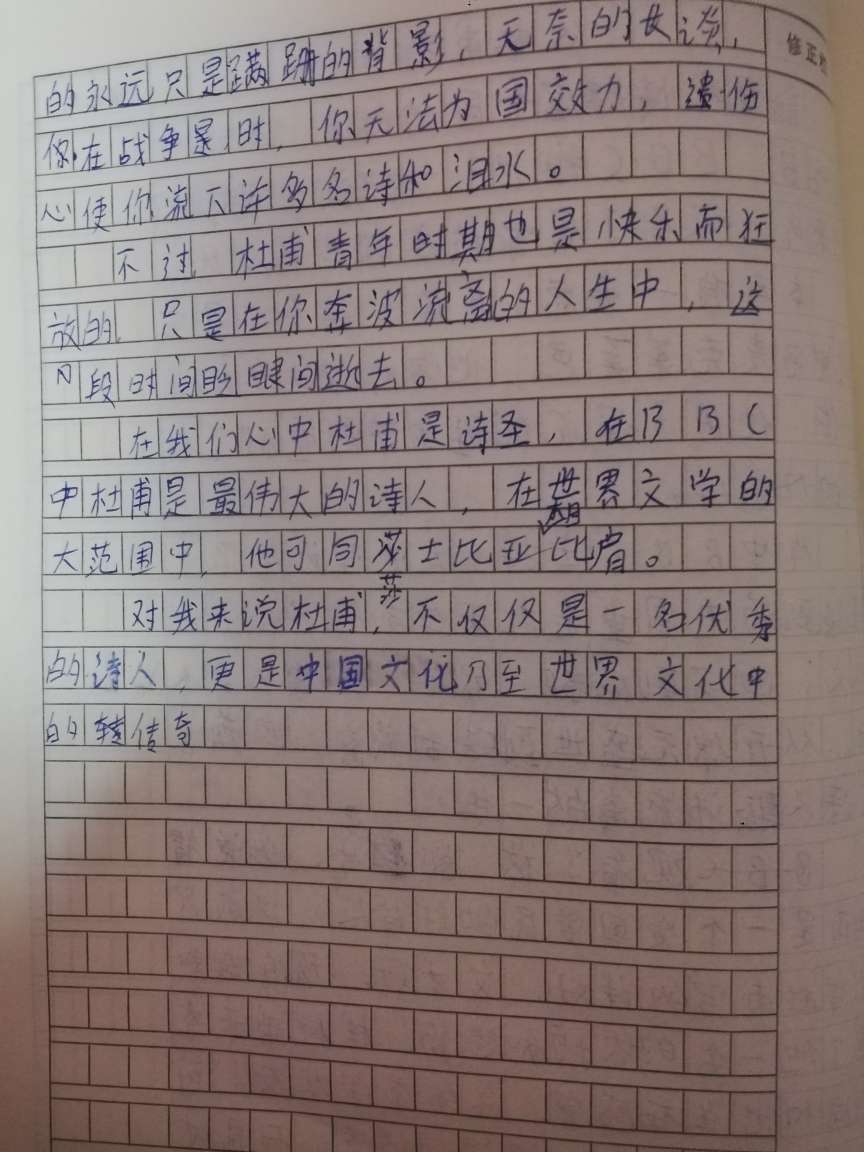 修正
的永远只是蹒跚的背影，无奈的
你在战争是时，你无法为国效力，遗伤
心使你流下许多名诗和泪水。
不过，杜甫青年时期也是快乐而狂
放的，只是在你奔波流离的人生中，这
段时间眨眼间逝去。
在我们心中杜甫是诗圣，在BBC
中杜甫是最伟大的诗人，在世界文学的
大范围中，他可同莎士比亚比肩。
莎
对我来说杜甫，不仅仅是一名优秀
的诗人，更是中国文化乃至世界文化中
的传奇